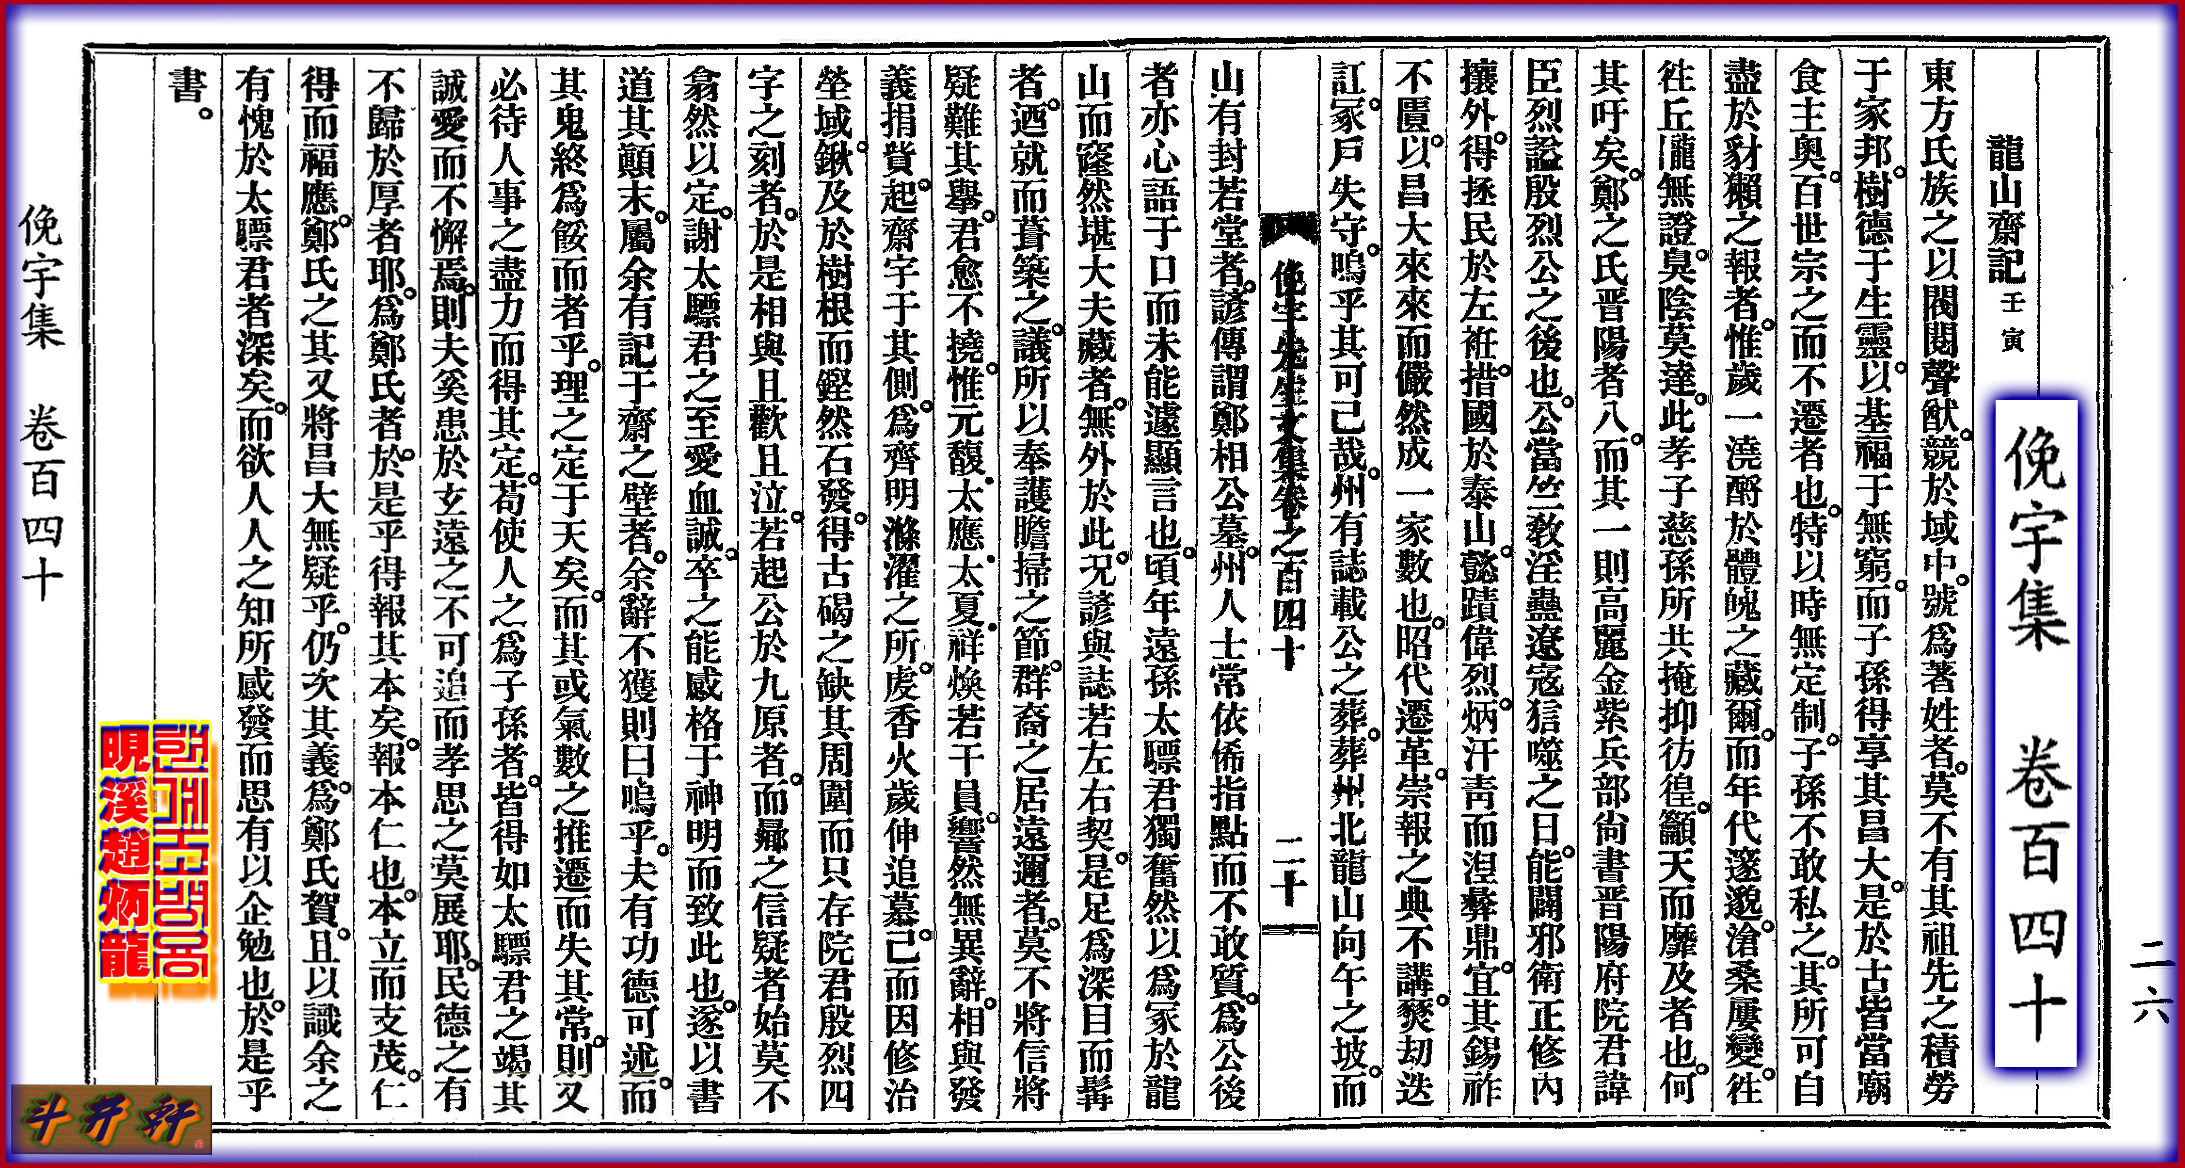 龍山齋記 壬寅
東方氏族之以閥閱聲猷。競於域中。號爲著姓者。莫不有其祖先之積勞
于家邦。樹德于生靈。以基福于無窮。而子孫得享其昌大。是於古皆當廟
食主奧。百世宗之而不遷者也。特以時無定制。子孫不敢私之。其所可自
盡於豺獺之報者。惟歲一澆酹於體魄之藏爾。而年代邃邈。滄桑屢變。徃
徃丘隴無證。臭陰莫達。此孝子慈孫所共掩抑彷徨。籲天而靡及者也。何
其吁矣。鄭之氏晋陽者八。而其一則高麗金紫兵部尙書晋陽府院君諱
臣烈謚殷烈公之後也。公當竺敎淫蠱遼寇狺噬之日。能闢邪衛正修內
攘外。得拯民於左袵。措國於泰山。懿蹟偉烈。炳汗靑而涅彝鼎。宜其錫祚
不匱。以昌大來來而儼然成一家數也。昭代遷革。崇報之典不講。燹刧迭
訌。冢戶失守。嗚乎其可已哉。州有誌載公之葬。葬州北龍山向午之坡。而
俛宇先生文集卷之百四十 二十
山有封若堂者。諺傳謂鄭相公墓。州人士常依俙指點而不敢質。爲公後
者亦心語于口而未能遽顯言也。頃年遠孫太驃君獨奮然以爲冢於龍
山而窿然堪大夫藏者。無外於此。况諺與誌若左右契。是足爲深目而髯
者。迺就而葺築之。議所以奉護膽掃之節。群裔之居遠邇者。莫不將信將
疑難其擧。君愈不撓。惟元馥太應太夏祥煥若干員。響然無異辭。相與發
義捐貲。起齋宇于其側。爲齊明滌濯之所。虔香火歲伸追慕。已而因修治
塋域。鍬及於樹根而鏗然石發。得古碣之缺其周圍而只存院君殷烈四
字之刻者。於是相與且歡且泣。若起公於九原者。而曏之信疑者始莫不
翕然以定。謝太驃君之至愛血誠。卒之能感格于神明而致此也。遂以書
道其顚末。屬余有記于齋之壁者。余辭不獲則曰嗚乎。夫有功德可述。而
其鬼終爲餒而者乎。理之定于天矣。而其或氣數之推遷而失其常。則又
必待人事之盡力而得其定。苟使人之爲子孫者。皆得如太驃君之竭其
誠愛而不懈焉。則夫奚患於玄遠之不可追而孝思之莫展耶。民德之有
不歸於厚者耶。爲鄭氏者。於是乎得報其本矣。報本仁也。本立而支茂。仁
得而福應。鄭氏之其又將昌大無疑乎。仍次其義。爲鄭氏賀。且以識余之
有愧於太驃君者深矣。而欲人人之知所感發而思有以企勉也。於是乎
書。
俛宇集 卷百四十
二六
俛宇集 卷百四十
현계조병용
晛溪趙炳龍
斗井軒